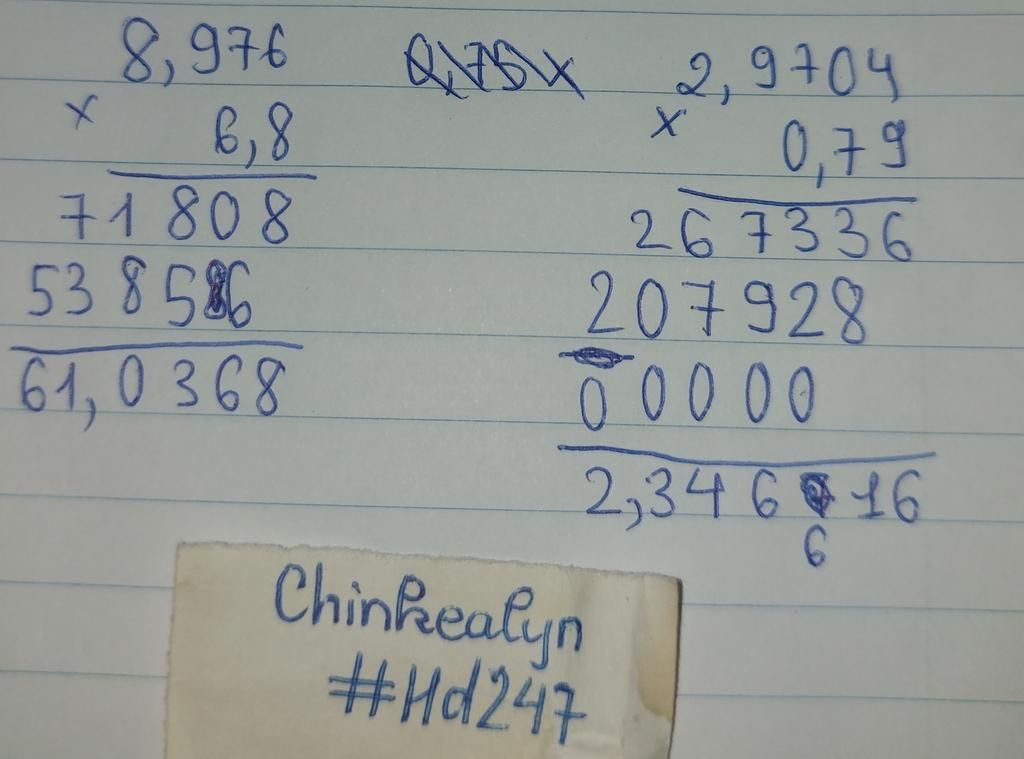 8,976
× 6,8
71808
53856
61,0368
2,9704
× 0,79
267336
207928
00000
2,346616
Chinkealyn
#Hd247